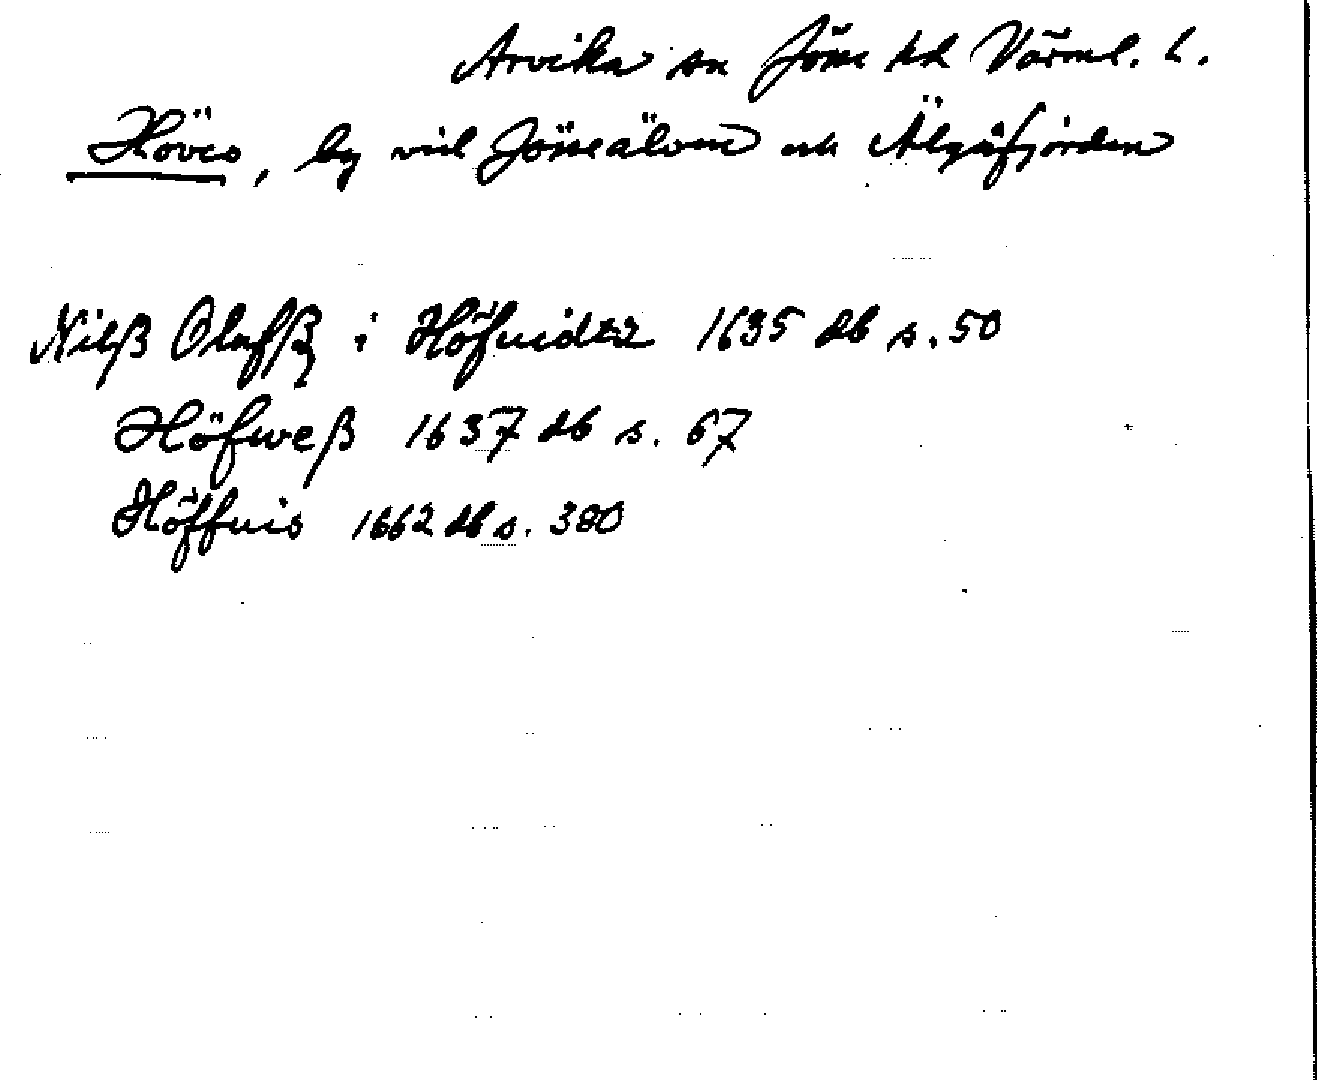 Arvika sn Jösse hd Värml. l.
Höves, by vid Jösseälven och Älgåfjorden
Nilß Olufß i Höfuidzz 1635 db s. 50
Höfweß 1637 db s. 67
Höffuis 1662 db s. 380